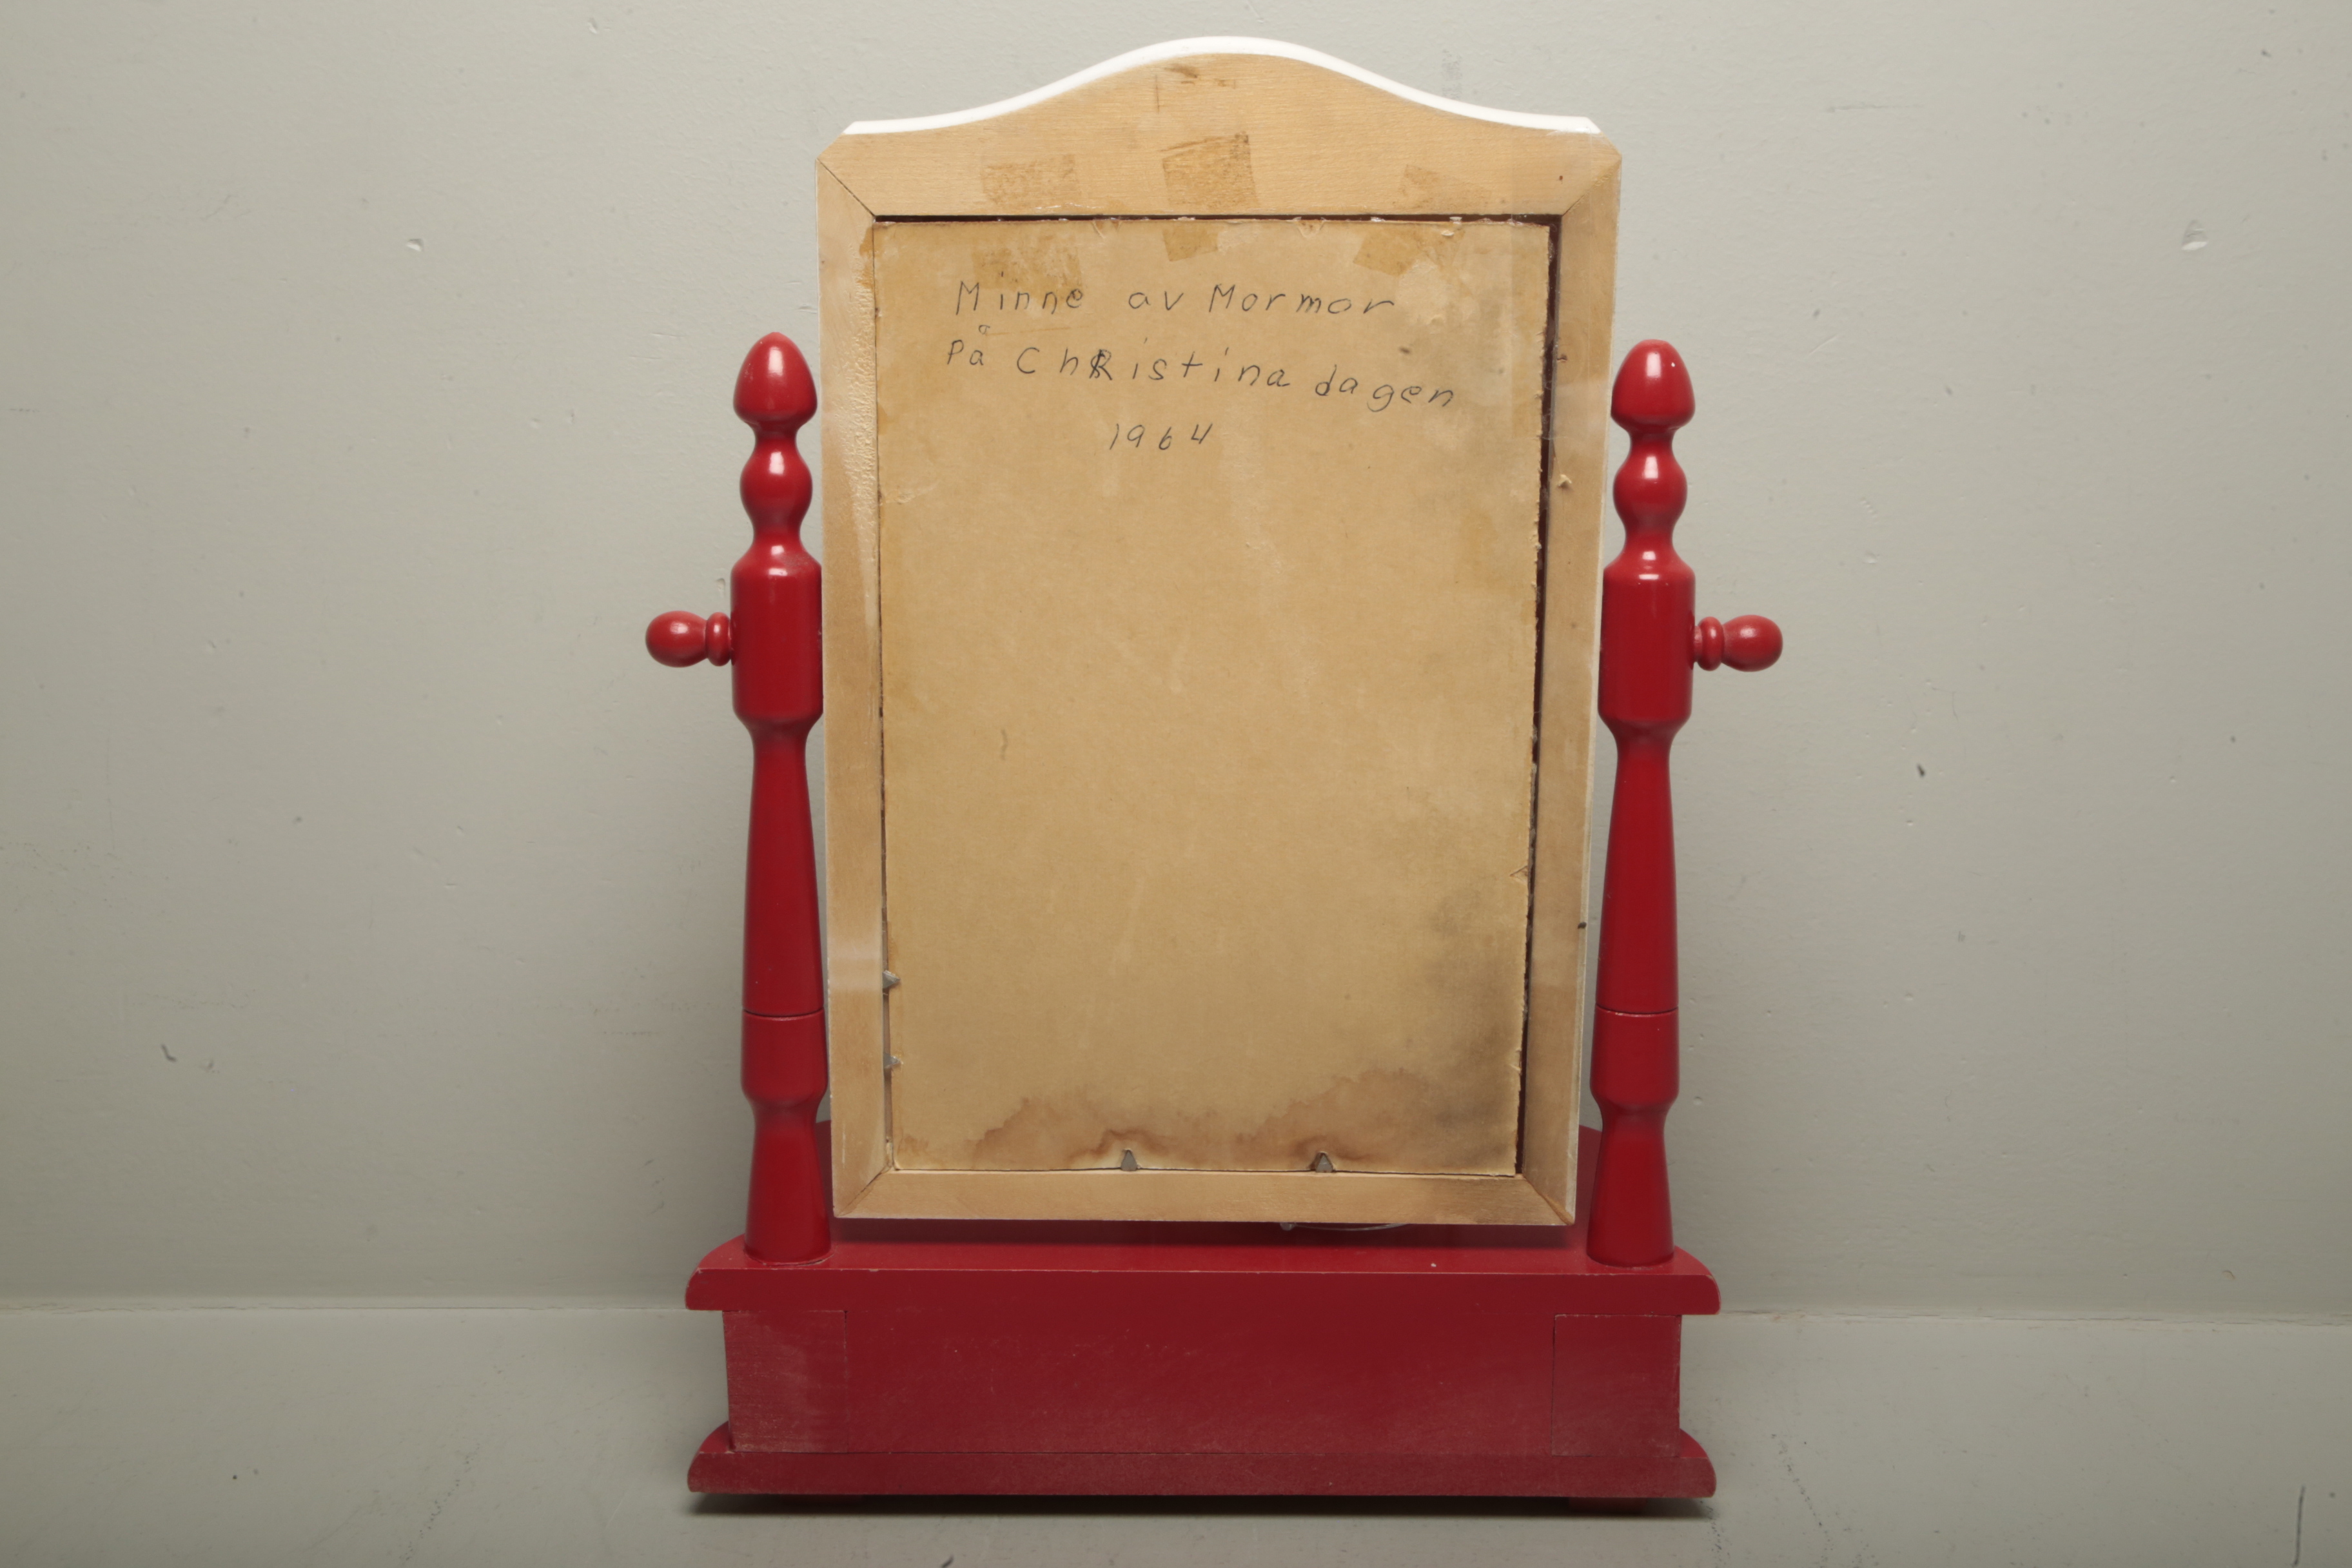 Minne av Mormor
På ChRistina dagen
1964